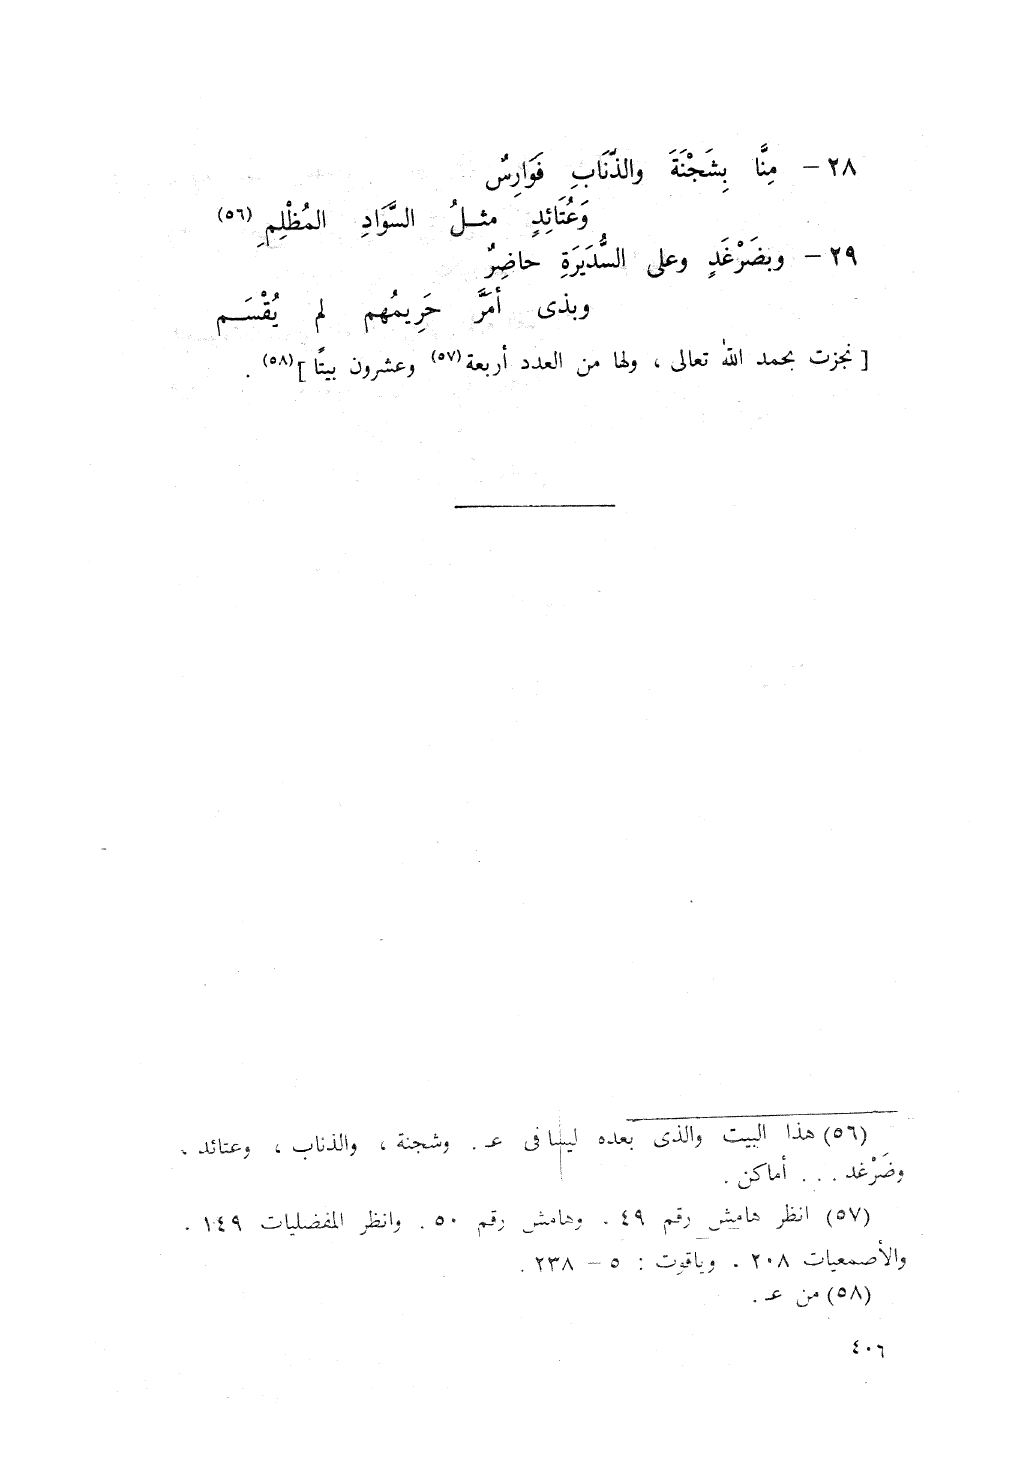 ٢٨ – مِنَّا بِشَجْنَةَ والذّنَابِ فَوَارِسٌ
وَعُتَائِدٍ مثـلُ السَّوَادِ المُظْلِمِ (٥٦)
٢٩ – وبضَرْغَدٍ وعلى السُّدَيَرَةِ حاضِرٌ
وبذى أمَرَّ حَرِيمُهم لم يُقْسَـم
[ نجزت بحمد اللّٰه تعالى ، ولها من العدد أربعة (٥٧) وعشرون بيتًا ] (٥٨) .
(٥٦) هذا البيت والذى بعده ليسا فى عـ . وشجنة ، والذناب ، وعتائد ،
وضَرْغد . . . أماكن .
(٥٧) انظر هامش رقم ٤٩ . وهامش رقم ٥٠ . وانظر المفضليات ١٤٩ .
والأصمعيات ٢٠٨ . وياقوت : ٥ – ٢٣٨ .
(٥٨) من عـ .
٤٠٦